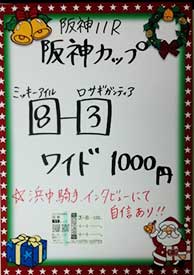 阪神11R
阪神カップ
ミッキーアイル ロサギガンティア
8-3
ワイド 1000円
☆浜中騎手インタビューにて
自信あり!!